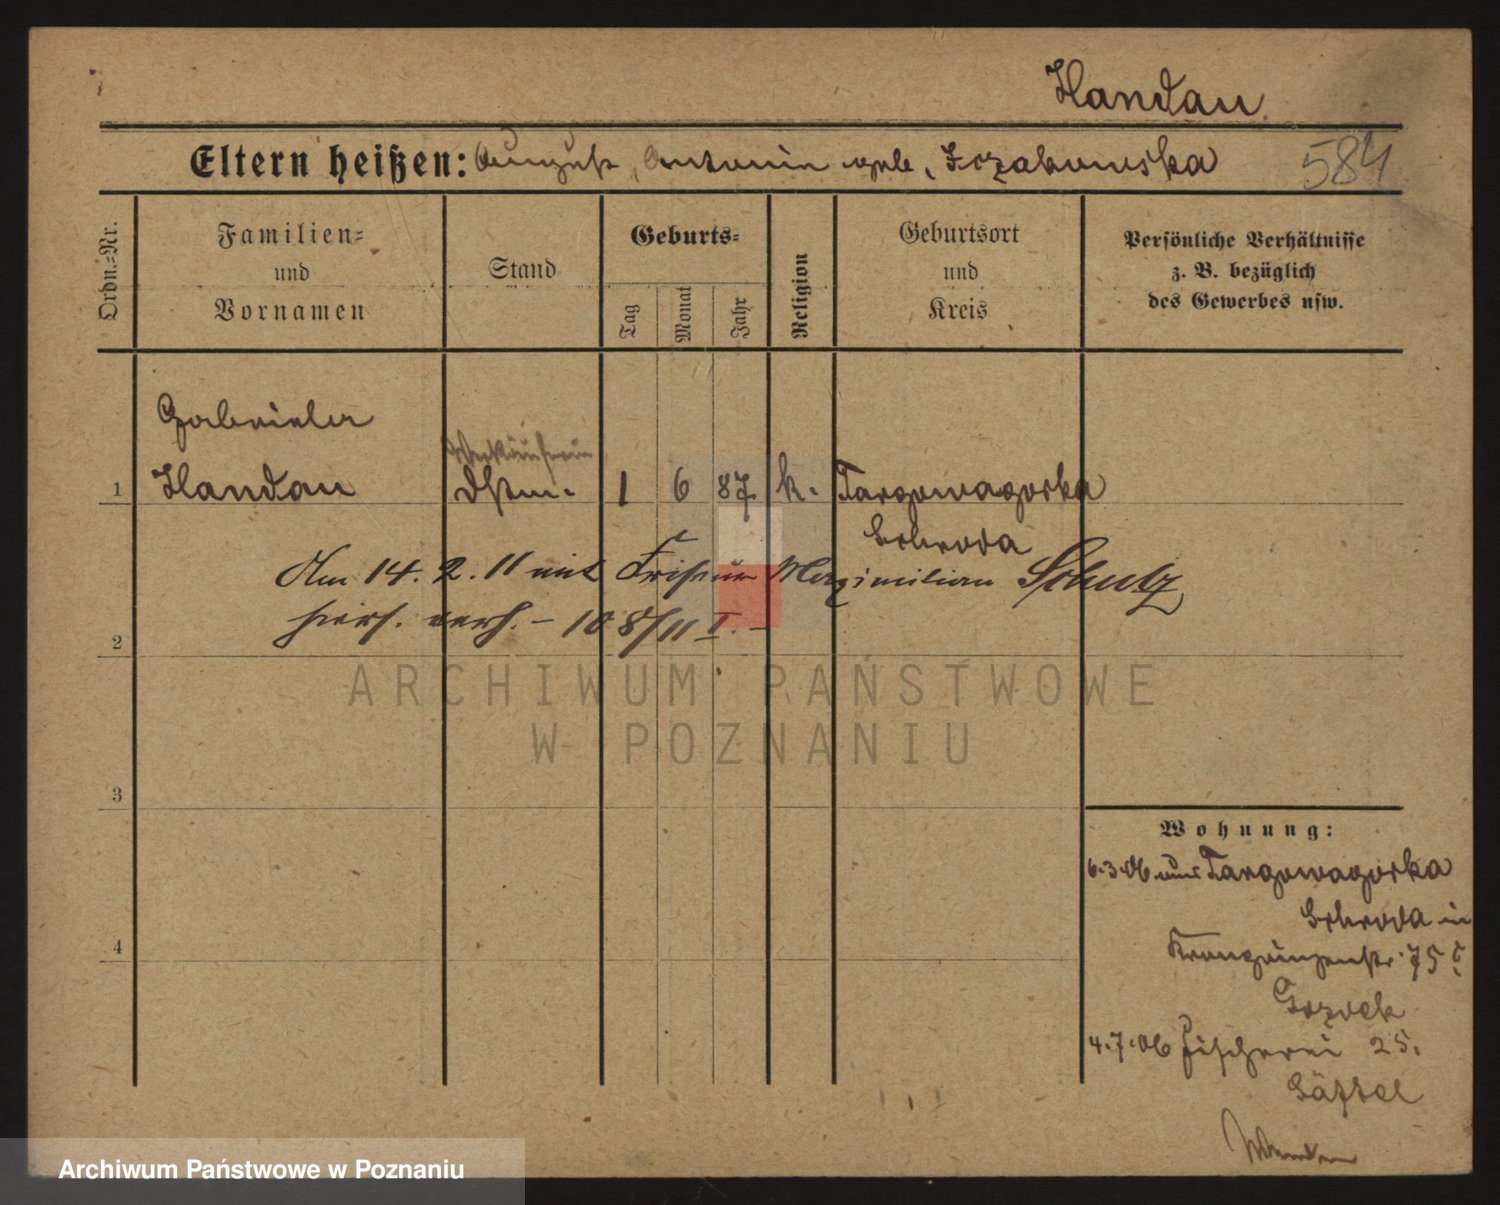 Handau
Eltern heißen: August, Antonie geb. Izakowska
584
Ordn.-Nr.
Familien-
und
Vornamen
Stand
Geburts-
Tag
Monat
Jahr
Religion
Geburtsort
und
Kreis
Persönliche Verhältnisse
z. B. bezüglich
des Gewerbes usw.
Gabriela
Verkäuferin
1 Handau Dstm. 1 6 87 k. Targowagorka
Schroda
Am 14. 2. 11 mit Friseur Maximilian Schulz
hiers. verh. – 108/11 I. –
2
ARCHIWUM PAŃSTWOWE
W POZNANIU
3
Wohnung:
6.3.06 aus Targowagorka
Schroda in
4
Kronprinzenstr. 75 I
4.7.06 Fischerei 25.
Archiwum Państwowe w Poznaniu